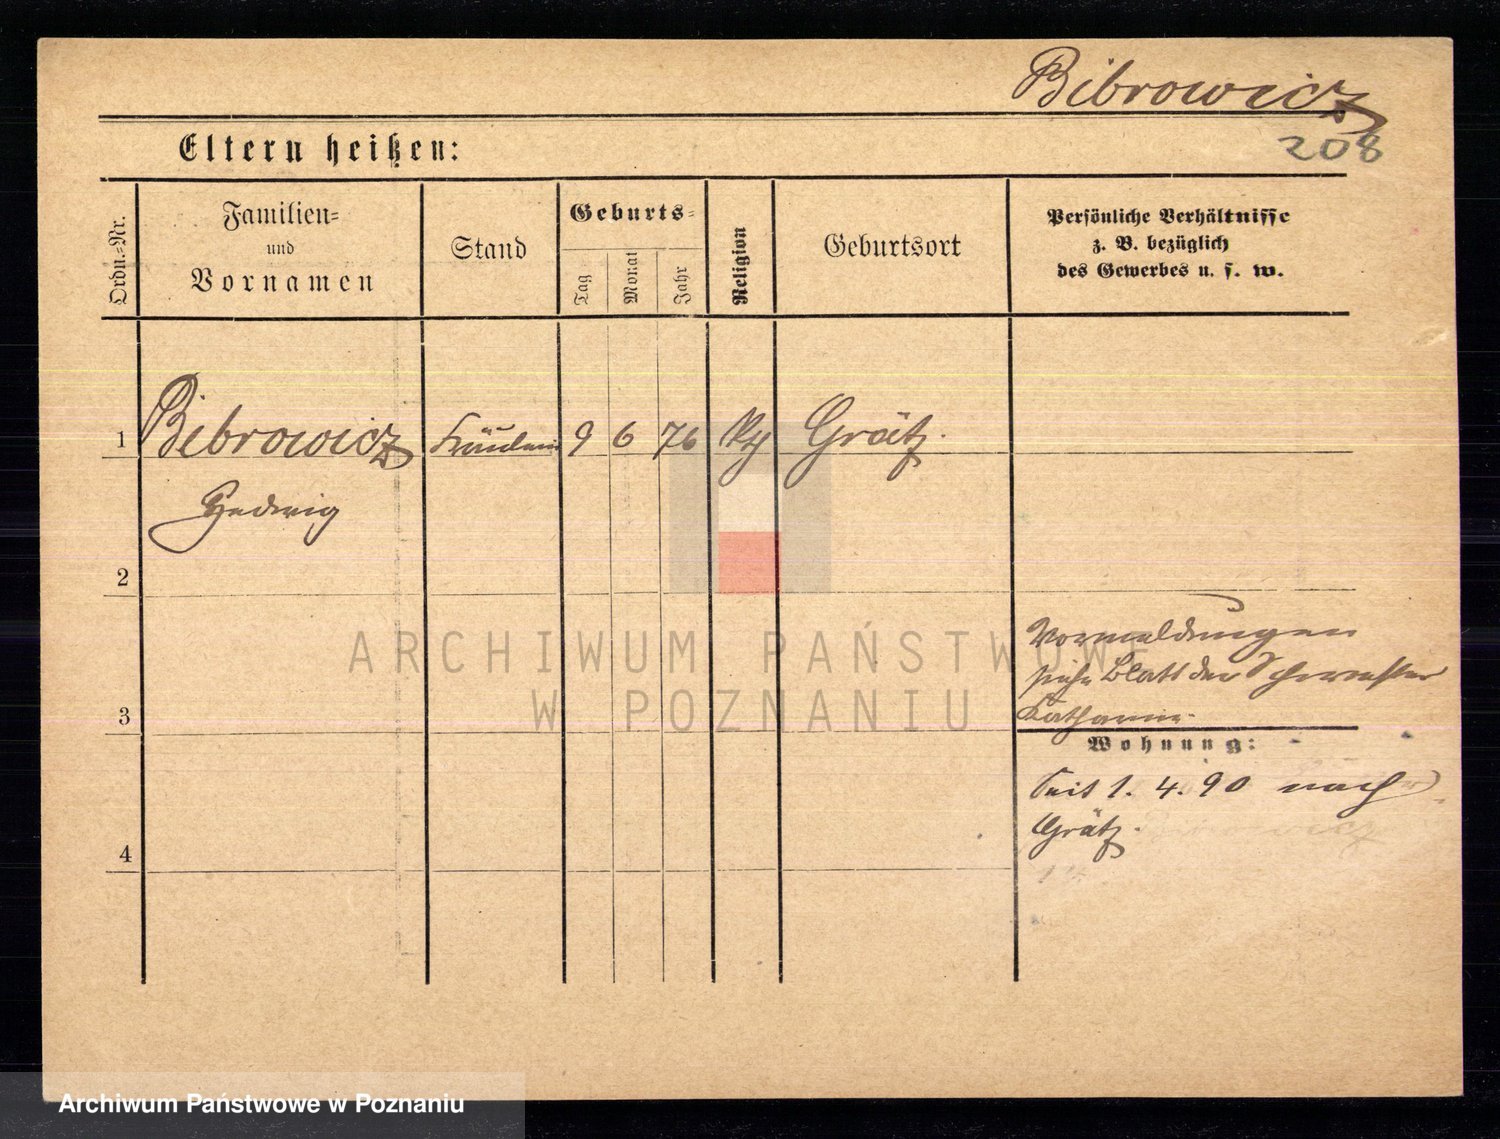 Bibrowicz
208
Eltern heißen:
Ordn.-Nr.
Familien-
und
Vornamen
Stand
Geburts-
Tag
Monat
Jahr
Religion
Geburtsort
Persönliche Verhältnisse
z. B. bezüglich
des Gewerbes u. s. w.
1 Bibrowicz Fräulein 9 6 76 Grätz.
Hedwig
2
Vormeldungen
siehe Blatt der Schwester
3 Katharina.
Wohnung:
Seit 1. 4. 90 nach
Grätz.
4
ARCHIWUM PAŃSTWOWE
W POZNANIU
Archiwum Państwowe w Poznaniu